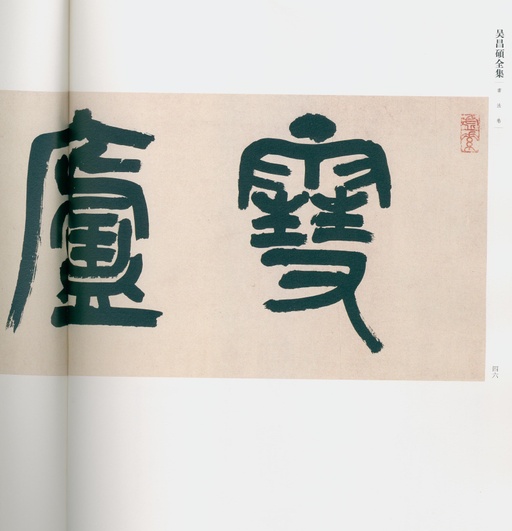 吴昌碩全集 書法卷一
雪廬
四六